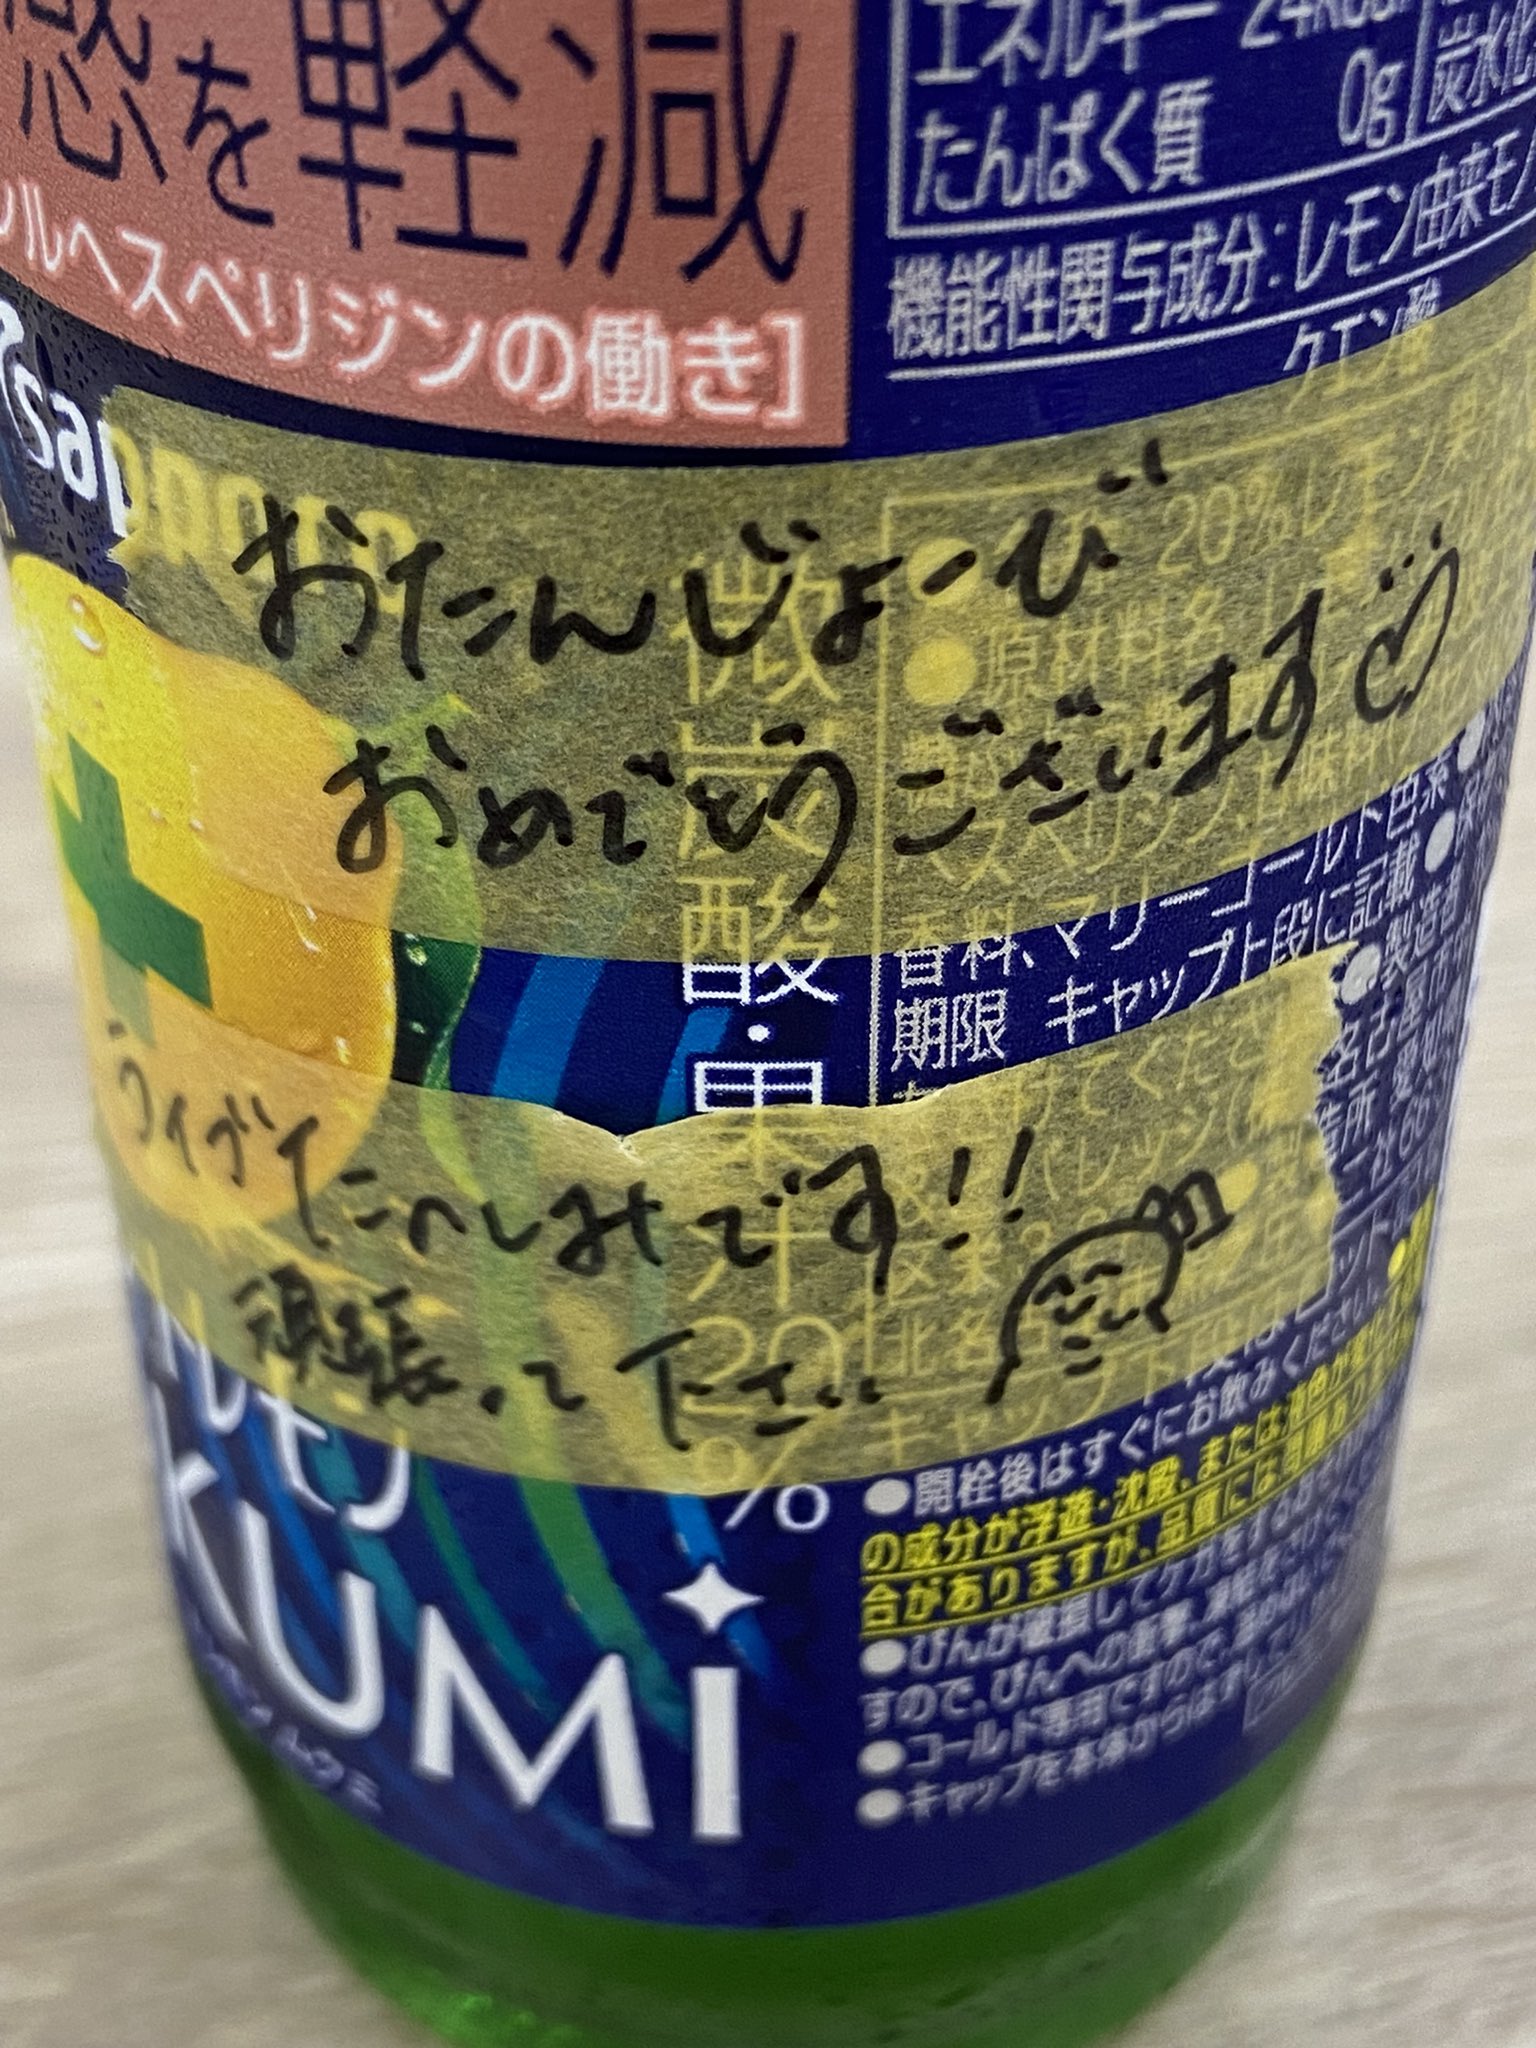 感を軽減
ルヘスペリジンの働き]
sapporo
エネルギー 24kcal
たんぱく質 0g
炭水化
機能性関与成分:レモン由来モノ
クエン酸
おたんじょーび
おめでとうございます♡
ライブたのしみです!!
頑張って下さい
微炭酸・果汁20%
20%レモン果汁
原材料名
香料、マリーゴールド色素
期限 キャップ下段に記載
製造者
名古屋市
レモン
KUMI
●開栓後はすぐにお飲みください。
の成分が浮遊・沈殿、または液色が
合がありますが、品質には問題
●びんが破損してケガをするおそれ
すので、びんへの衝撃、
●コールド専用ですので、温めない
●キャップを本体からはずして